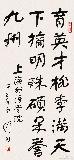 育英才桃李满天
下摘明珠硕果誉
九州
上海学院